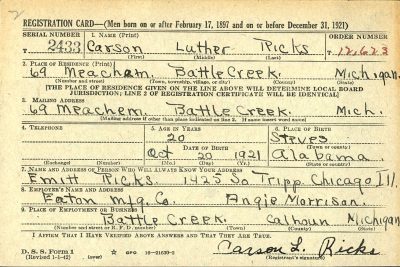 REGISTRATION CARD—(Men born on or after February 17, 1897 and on or before December 31, 1921)
SERIAL NUMBER 1. Name (Print) ORDER NUMBER
T 2433 Carson Luther Ricks 12,623
(First) (Middle) (Last)
2. Place of Residence (Print)
69 Meachem. Battle Creek. Michigan.
(Number and street) (Town, township, village, or city) (County) (State)
[THE PLACE OF RESIDENCE GIVEN ON THE LINE ABOVE WILL DETERMINE LOCAL BOARD
JURISDICTION; LINE 2 OF REGISTRATION CERTIFICATE WILL BE IDENTICAL]
3. Mailing Address
69 Meachem. Battle Creek. Mich.
[Mailing address if other than place indicated on line 2. If same insert word same]
4. Telephone 5. Age in Years 6. Place of Birth
20 Steves
Date of Birth (Town or county)
Oct 20 1921 Alabama
(Exchange) (Number) (Mo.) (Day) (Yr.) (State or country)
7. Name and Address of Person Who Will Always Know Your Address
Emit Ricks. 1425 So Tripp. Chicago Ill.
8. Employer's Name and Address
Eaton Mfg. Co. Angie Morrison.
9. Place of Employment or Business
Battle Creek. Calhoun Michigan
(Number and street or R. F. D. number) (Town) (County) (State)
I Affirm That I Have Verified Above Answers and That They Are True.
D. S. S. Form 1
(Revised 1-1-42) (over) GPO 16—21630-2
Carson L. Ricks
(Registrant's signature)